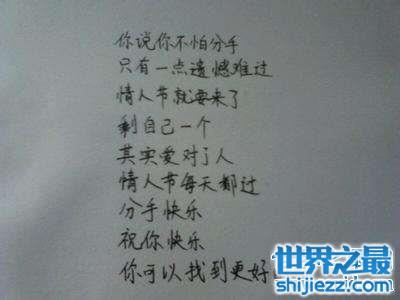 你说你不怕分手
只有一点遗憾难过
情人节就要来了
剩自己一个
其实爱对了人
情人节每天都过
分手快乐
祝你快乐
你可以找到更好
世界之最
shijiezzj.com